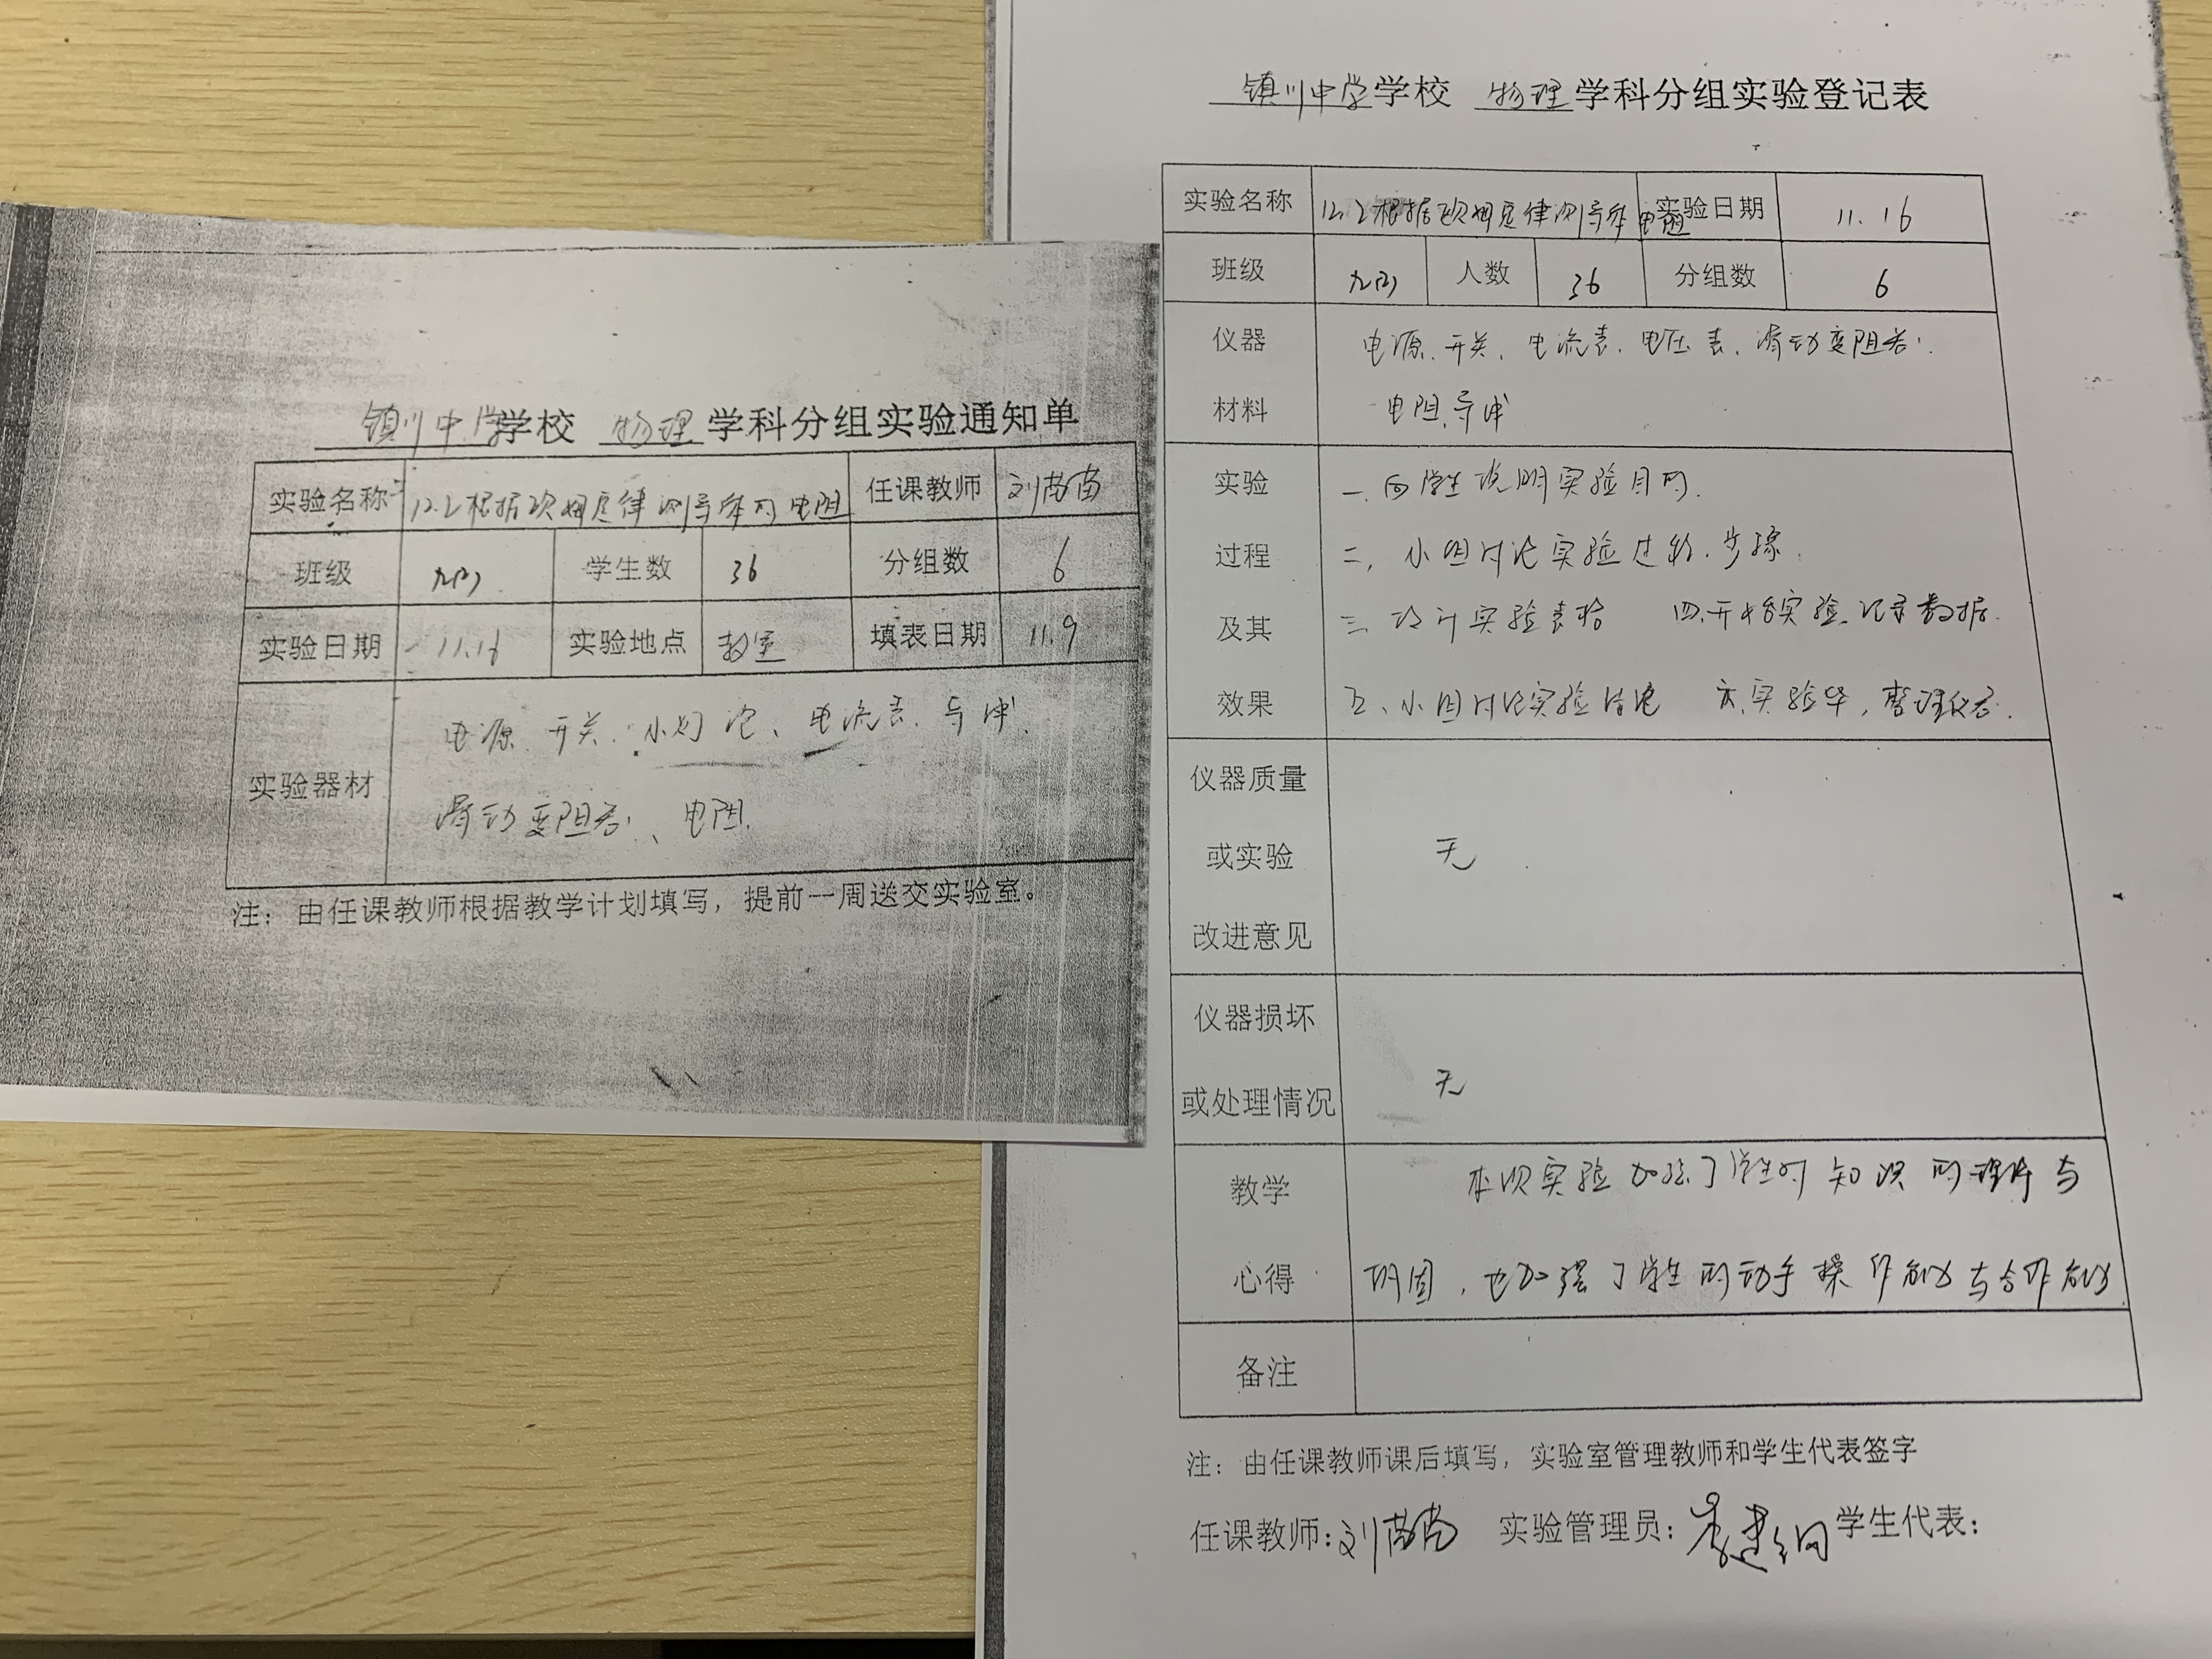 镇川中学学校 物理 学科分组实验通知单
实验名称 12.2根据欧姆定律测导体的电阻 任课教师 刘苗苗
班级 九(2) 学生数 36 分组数 6
实验日期 11.16 实验地点 教室 填表日期 11.9
实验器材 电源、开关、小灯泡、电流表、导线
滑动变阻器、电阻
注：由任课教师根据教学计划填写，提前一周送交实验室。
镇川中学学校 物理 学科分组实验登记表
实验名称 12.2根据欧姆定律测导体电阻 实验日期 11.16
班级 九(2) 人数 36 分组数 6
仪器 电源、开关、电流表、电压表、滑动变阻器、
材料 电阻、导线
实验 一、向学生说明实验目的.
过程 二、小组讨论实验过程、步骤.
及其 三、设计实验表格 四、开始实验、记录数据.
效果 五、小组讨论实验结论 六、实验毕，整理仪器.
仪器质量
或实验 无
改进意见
仪器损坏
或处理情况 无
教学 本次实验加强了学生对知识的理解与
心得 巩固，也加强了学生的动手操作能力与合作能力
备注
注：由任课教师课后填写，实验室管理教师和学生代表签字
任课教师：刘苗苗 实验管理员： 学生代表：